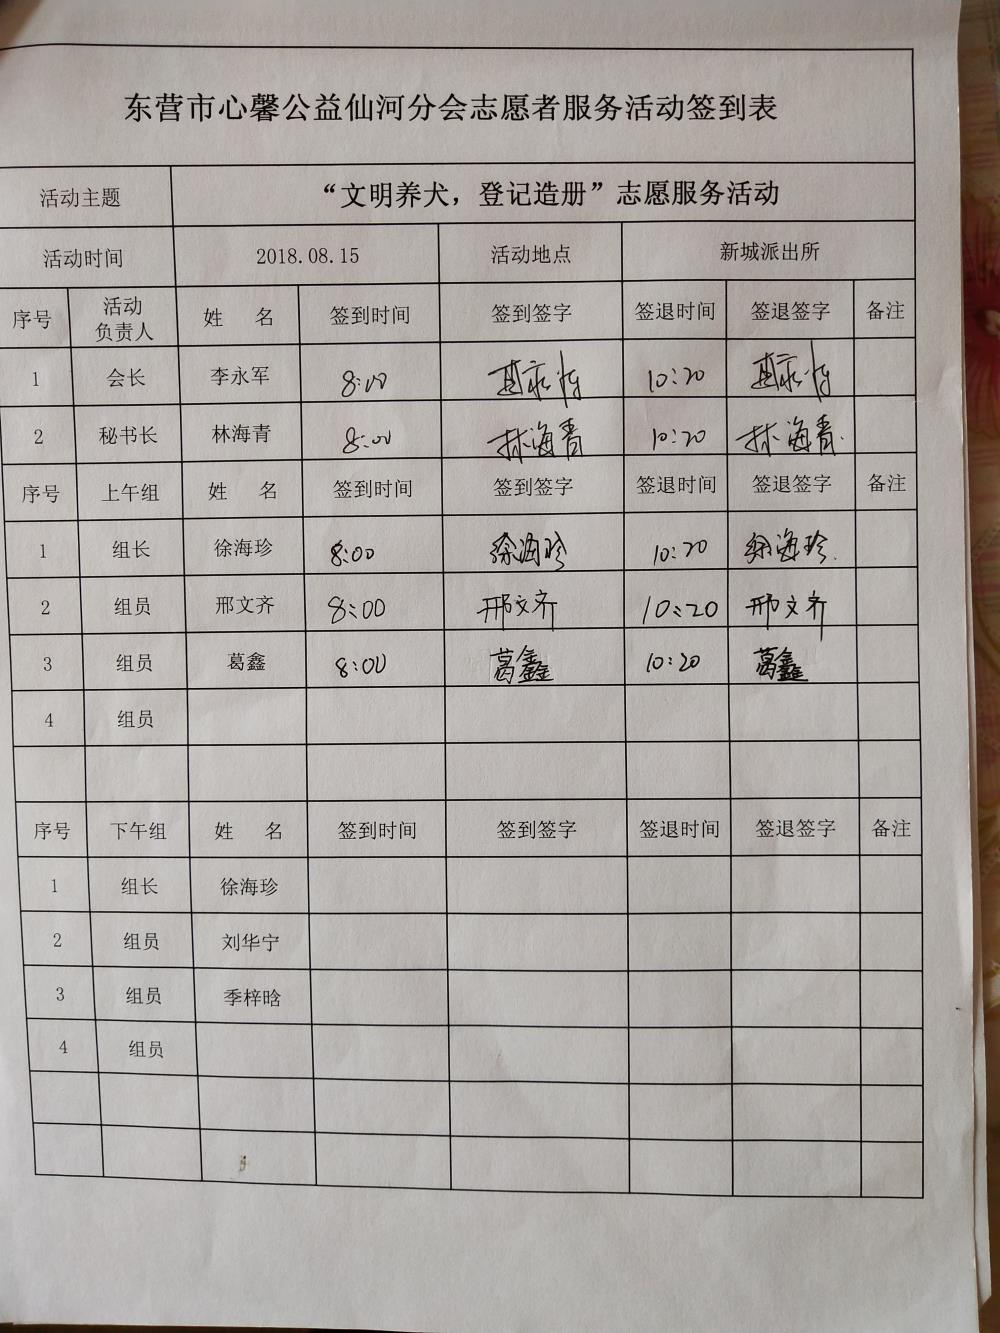 东营市心馨公益仙河分会志愿者服务活动签到表
活动主题 “文明养犬，登记造册”志愿服务活动
活动时间 2018.08.15 活动地点 新城派出所
序号 活动负责人 姓 名 签到时间 签到签字 签退时间 签退签字 备注
1 会长 李永军 8:00 10:20
2 秘书长 林海青 8:00 林海青 10:20 林海青
序号 上午组 姓 名 签到时间 签到签字 签退时间 签退签字 备注
1 组长 徐海珍 8:00 徐海珍 10:20 徐海珍
2 组员 邢文齐 8:00 邢文齐 10:20 邢文齐
3 组员 葛鑫 8:00 葛鑫 10:20 葛鑫
4 组员
序号 下午组 姓 名 签到时间 签到签字 签退时间 签退签字 备注
1 组长 徐海珍
2 组员 刘华宁
3 组员 季梓晗
4 组员